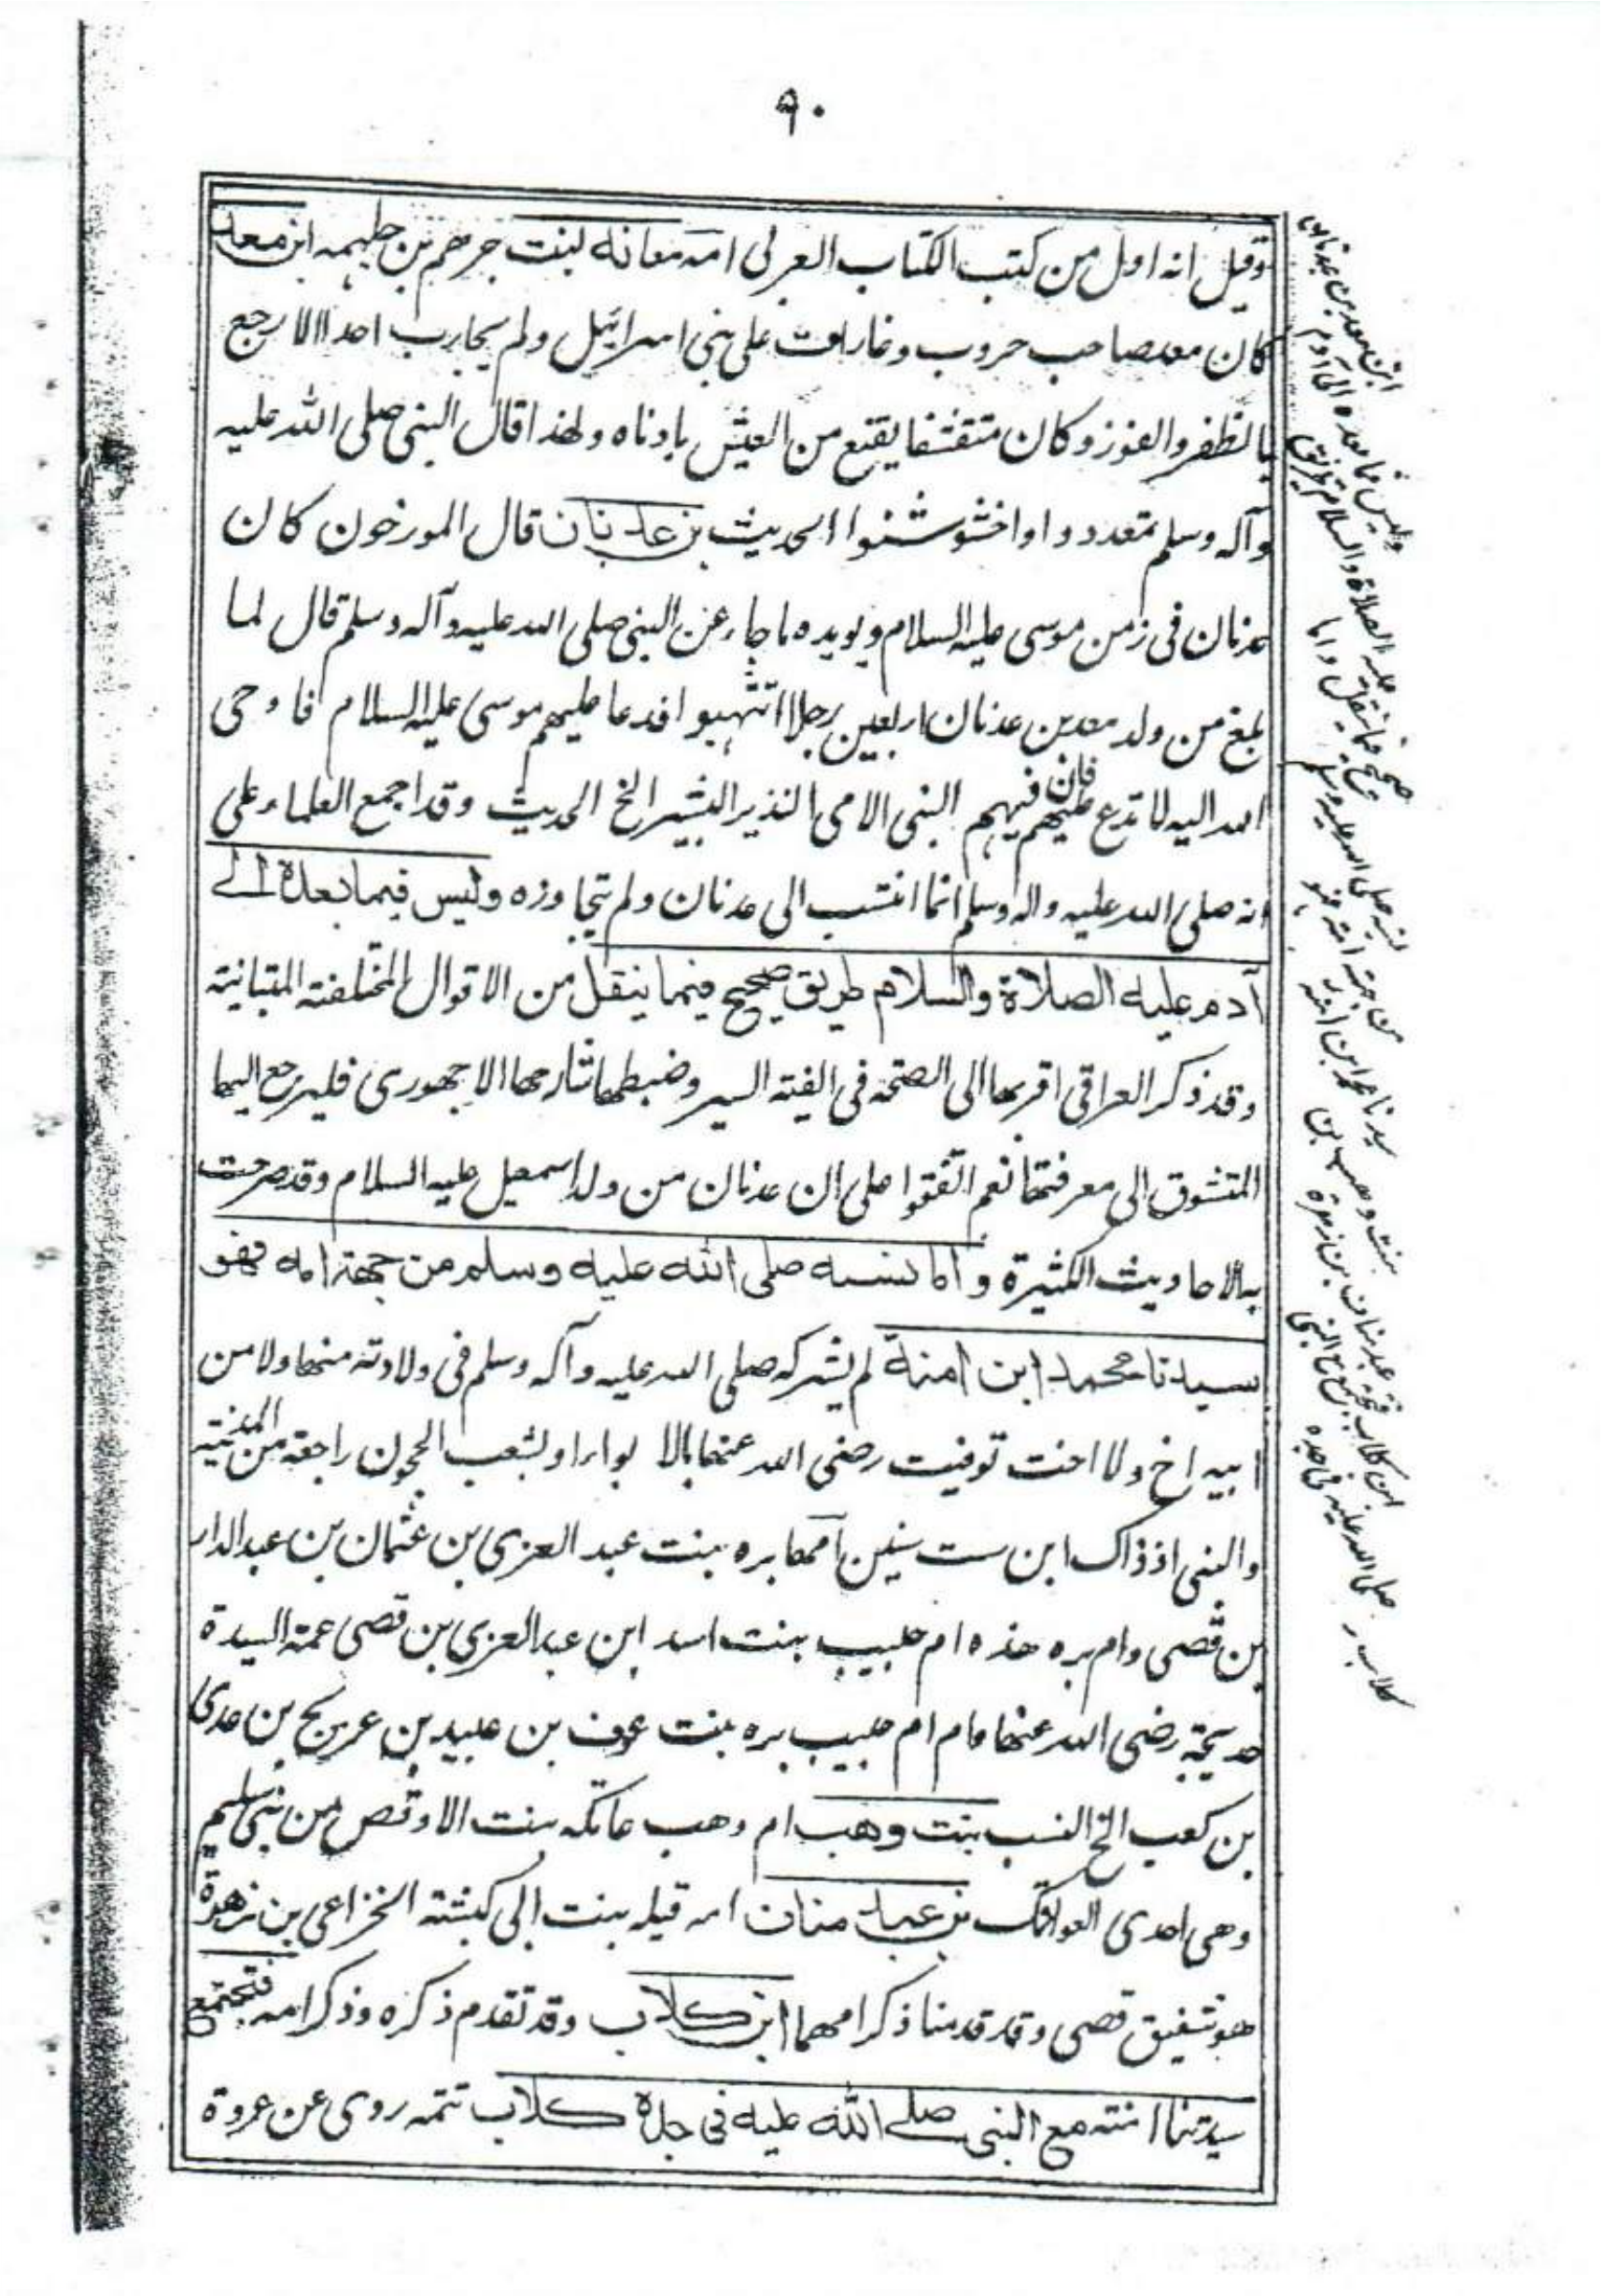 ٩٠
وقيل انه اول من كتب الكتاب العربى امه معانة بنت جرهم بن جلهمه ابن معد
كان معد صاحب حروب وغارات على بنى اسرائيل ولم يحارب احدا الا رجع
بالظفر والفوز وكان متقشفا يقنع من العيش بادناه ولهذا قال النبى صلى الله عليه
وآله وسلم تمعددوا واخشوشنوا الحديث بن عدنان قال المورخون كان
عدنان فى زمن موسى عليه السلام ويويده ما جاء عن النبى صلى الله عليه وآله وسلم قال لما
بلغ من ولد معد بن عدنان اربعين رجلا انتهبوا فدعا عليهم موسى عليه السلام فاوحى
الله اليه لا تدع عليهم فان فيهم النبى الامى النذير البشير الخ الحديث وقد اجمع العلماء على
انه صلى الله عليه واله وسلم انما انتسب الى عدنان ولم يتجاوزه وليس فيما بعده الى
آدم عليه الصلاة والسلام طريق صحيح فيما ينقل من الاقوال المختلفة المتباينة
وقد ذكر العراقى اقربها الى الصحة فى الفية السير وضبطها شارحها الاجهورى فليرجع اليها
المتشوق الى معرفتها نعم اتفقوا على ان عدنان من ولد اسمعيل عليه السلام وقد صرحت
به الاحاديث الكثيرة واما نسبه صلى الله عليه وسلم من جهة امه فهو
سيدنا محمد ابن امنة لم يشركه صلى الله عليه وآله وسلم فى ولادته منها ولا من
ابيه اخ ولا اخت توفيت رضى الله عنها بالابواء او بشعب الحجون راجعة من المدينة
والنبى اذ ذاك ابن ست سنين امها بره بنت عبد العزى بن عثمان بن عبد الدار
بن قصى وام بره هذه ام حبيب بنت اسد ابن عبد العزى بن قصى عمة السيدة
خديجة رضى الله عنها وام ام حبيب بره بنت عوف بن عبيد بن عريج بن عدى
بن كعب الخ النسب بنت وهب ام وهب عاتكه بنت الاوقص من بنى سليم
وهى احدى العواتك بن عبد مناف امه قيله بنت ابى كبشة الخزاعى بن زهرة
هو شقيق قصى وقد قدمنا ذكر امهما ابن كلاب وقد تقدم ذكره وذكر امه فتجتمع
سيدتنا امنة مع النبى صلى الله عليه فى جده كلاب تتمه روى عن عروة
ابن معد بن عدنان
وليس فيما بعده الى آدم
عليه الصلاة والسلام طريق
صحيح فيما ينقل واما
نسبه صلى الله عليه وسلم
من جهة امه فهو
سيدنا محمد ابن امنة
بنت وهب بن
عبد مناف بن زهرة
ابن كلاب فتجتمع مع النبى
صلى الله عليه فى جده
كلاب